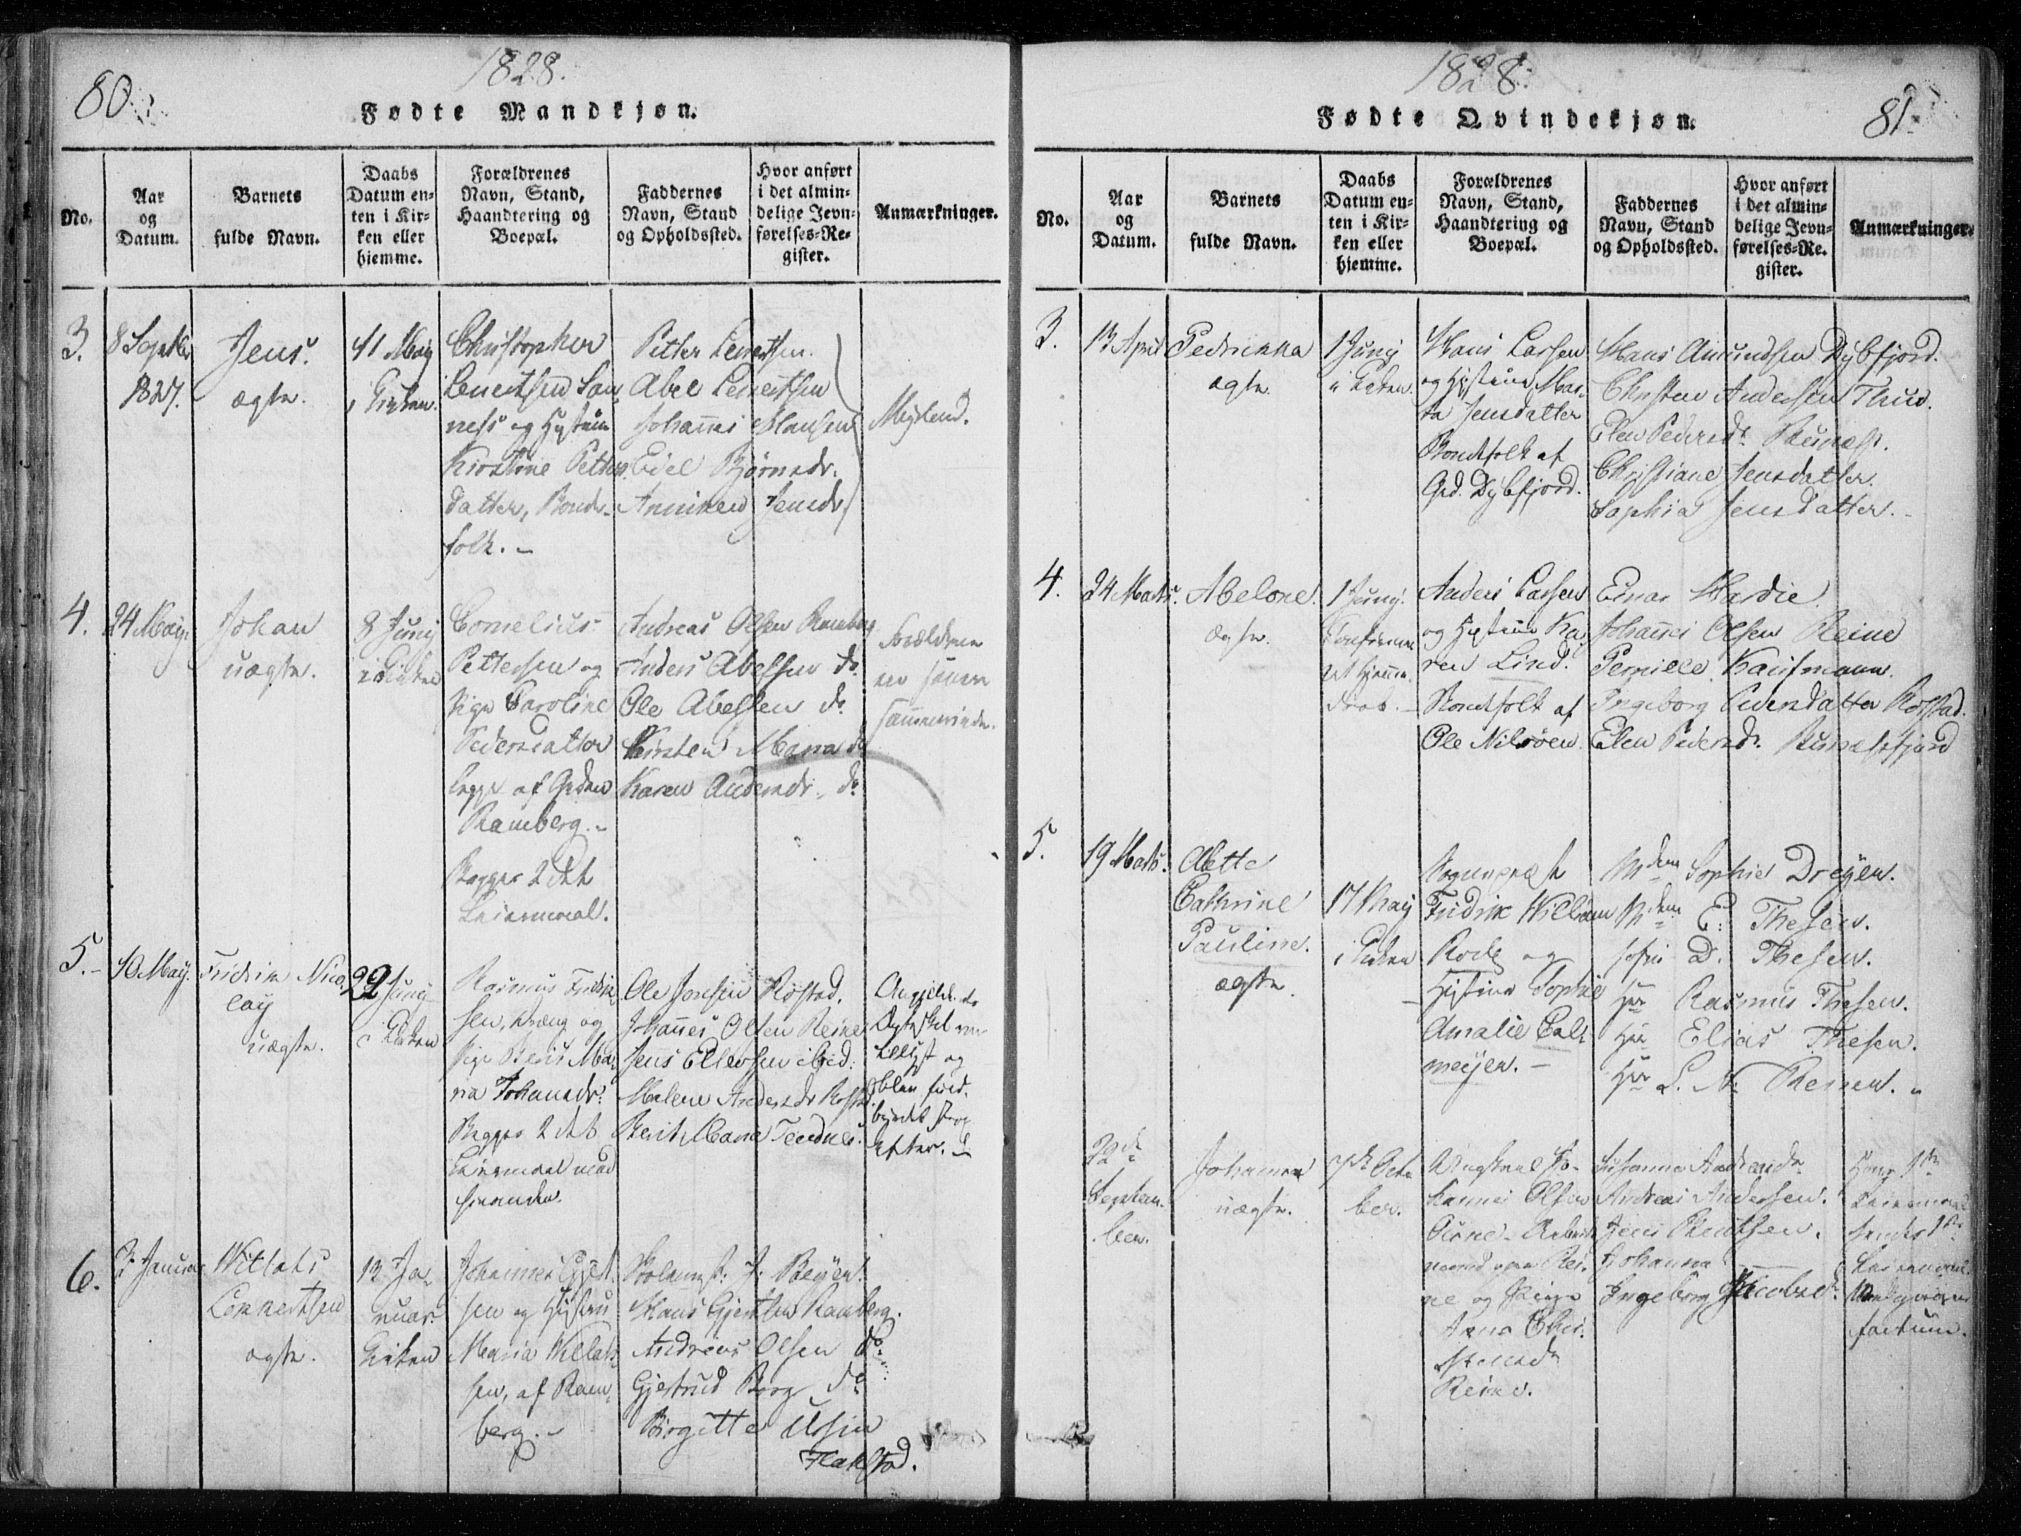 80.
1828.
Fødte Mandkjøn.
No.
Aar
og
Datum.
Barnets
fulde Navn.
Daabs
Datum en-
ten i Kir-
ken eller
hjemme.
Forældrenes
Navn, Stand,
Haandtering og
Boepæl.
Faddernes
Navn, Stand
og Opholdssted.
Hvor anført
i det almin-
delige Jevn-
førelses-Re-
gister.
Anmærkninger.
3.
8 Septbr
1827.
Jens.
ægte.
11 May
i Kirken.
Christopher
Lenertsen San-
ness og Hustrue
Kirstine Petters
datter, Bonde-
folk. –
Petter Lenertsen.
Abel Lenertsen
Johannes Hansen
Edel Bjørnsdr.
Anniken Jensdr.
Myland.
4.
24 May
Johan
uægte.
8 Juny
i Kirken
Cornelius
Pettersen og
Pige Caroline
Pedersdatter
begge af Gden
Ramberg. –
Begges 2det
Leiermaal.
Andreas Olsen Ramberg
Anders Abelsen do
Ole Abelsen do
Kirsten Maria do
Karen Andersdr. do
Forældrene
ere
5. –
10 May.
Fridrik Nico
lay
uægte.
22 Juny
i Kirken
Rasmus Fridrik
sen, Dreng og
Pige Berit Ma-
ria Johansdr.
Begges 2det
Leiermaal med
hinanden.
Ole Jensen Røstad.
Johannes Olsen Reine
Jens Ellevsen ibid.
Malene Andersdr Røstad
Berit Maria Tendnes.
og
efter. –
6.
3 Januar
Willats
Lennertsen
ægte.
13 Ja-
nuar
Kirken
Johannes Gjert-
sen og Hustru
Maria Willats
sen, af Ram-
berg. –
J. Beyer.
Hans Gjertsen Ramberg.
Andreas Olsen do.
Gjertrud Borg do
Birgitte Ursin
Flakstad.
1828.
81.
Fødte Qvindekjøn.
No.
Aar
og
Datum.
Barnets
fulde Navn.
Daabs
Datum en-
ten i Kir-
ken eller
hjemme.
Forældrenes
Navn, Stand,
Haandtering og
Boepæl.
Faddernes
Navn, Stand
og Opholdssted.
Hvor anført
i det almin-
delige Jevn-
førelses-Re-
gister.
Anmærkninger.
3.
13 April
Pedrikka
ægte.
1 Juny
i Kirken.
Hans Larsen
og Hustrue Mar-
ta Jensdatter
Bondefolk af
Grd. Dybfjord.
Hans Amundsen Dybfjord.
Christen Andersen Thuv.
Elen Pedersdr
Christiane Jensdatter.
Sophia Jensdatter. –
4.
24 Marts.
Abelone.
Ægte.
1 Juny.
Confirme-
ret Hjemme-
daab. –
Anders Larsen
og Hustrue Ka
ren Lind.
Bondefolk af
Ole Nilsøen.
Einar Hardie.
Johannes Olsen Reine
Pernille Kaufmann.
Ingeborg Pedersdatter Røstad.
Elen Pedersdr.
5.
19 Marts.
Alette
Cathrine
Pauline.
ægte.
17 May
i Kirken
Sognepræst
Fridrik William
Rode og
Hustrue Sophie
Amalie Cal-
meijer. –
Mdme Sophie Dreyer.
Mdme E. Thesen.
Jofru D. Thesen.
Hrr Rasmus Thesen.
Hrr Elias Thesen.
Hrr L. N.
22de
Septem-
ber.
Johanna
uægte.
7de Octo
ber.
Ungkarl Jo-
hannes Olsen
Rei-
ne og Pige
Anna Chri-
Reine.
Susanna Andreasdr
Andreas Andersen.
Jens Knutsen.
Johanna
Ingeborg Jacobsdr
Hans 1ste
Leiermaal
hendes 1ste
Leiermaal.
factum.